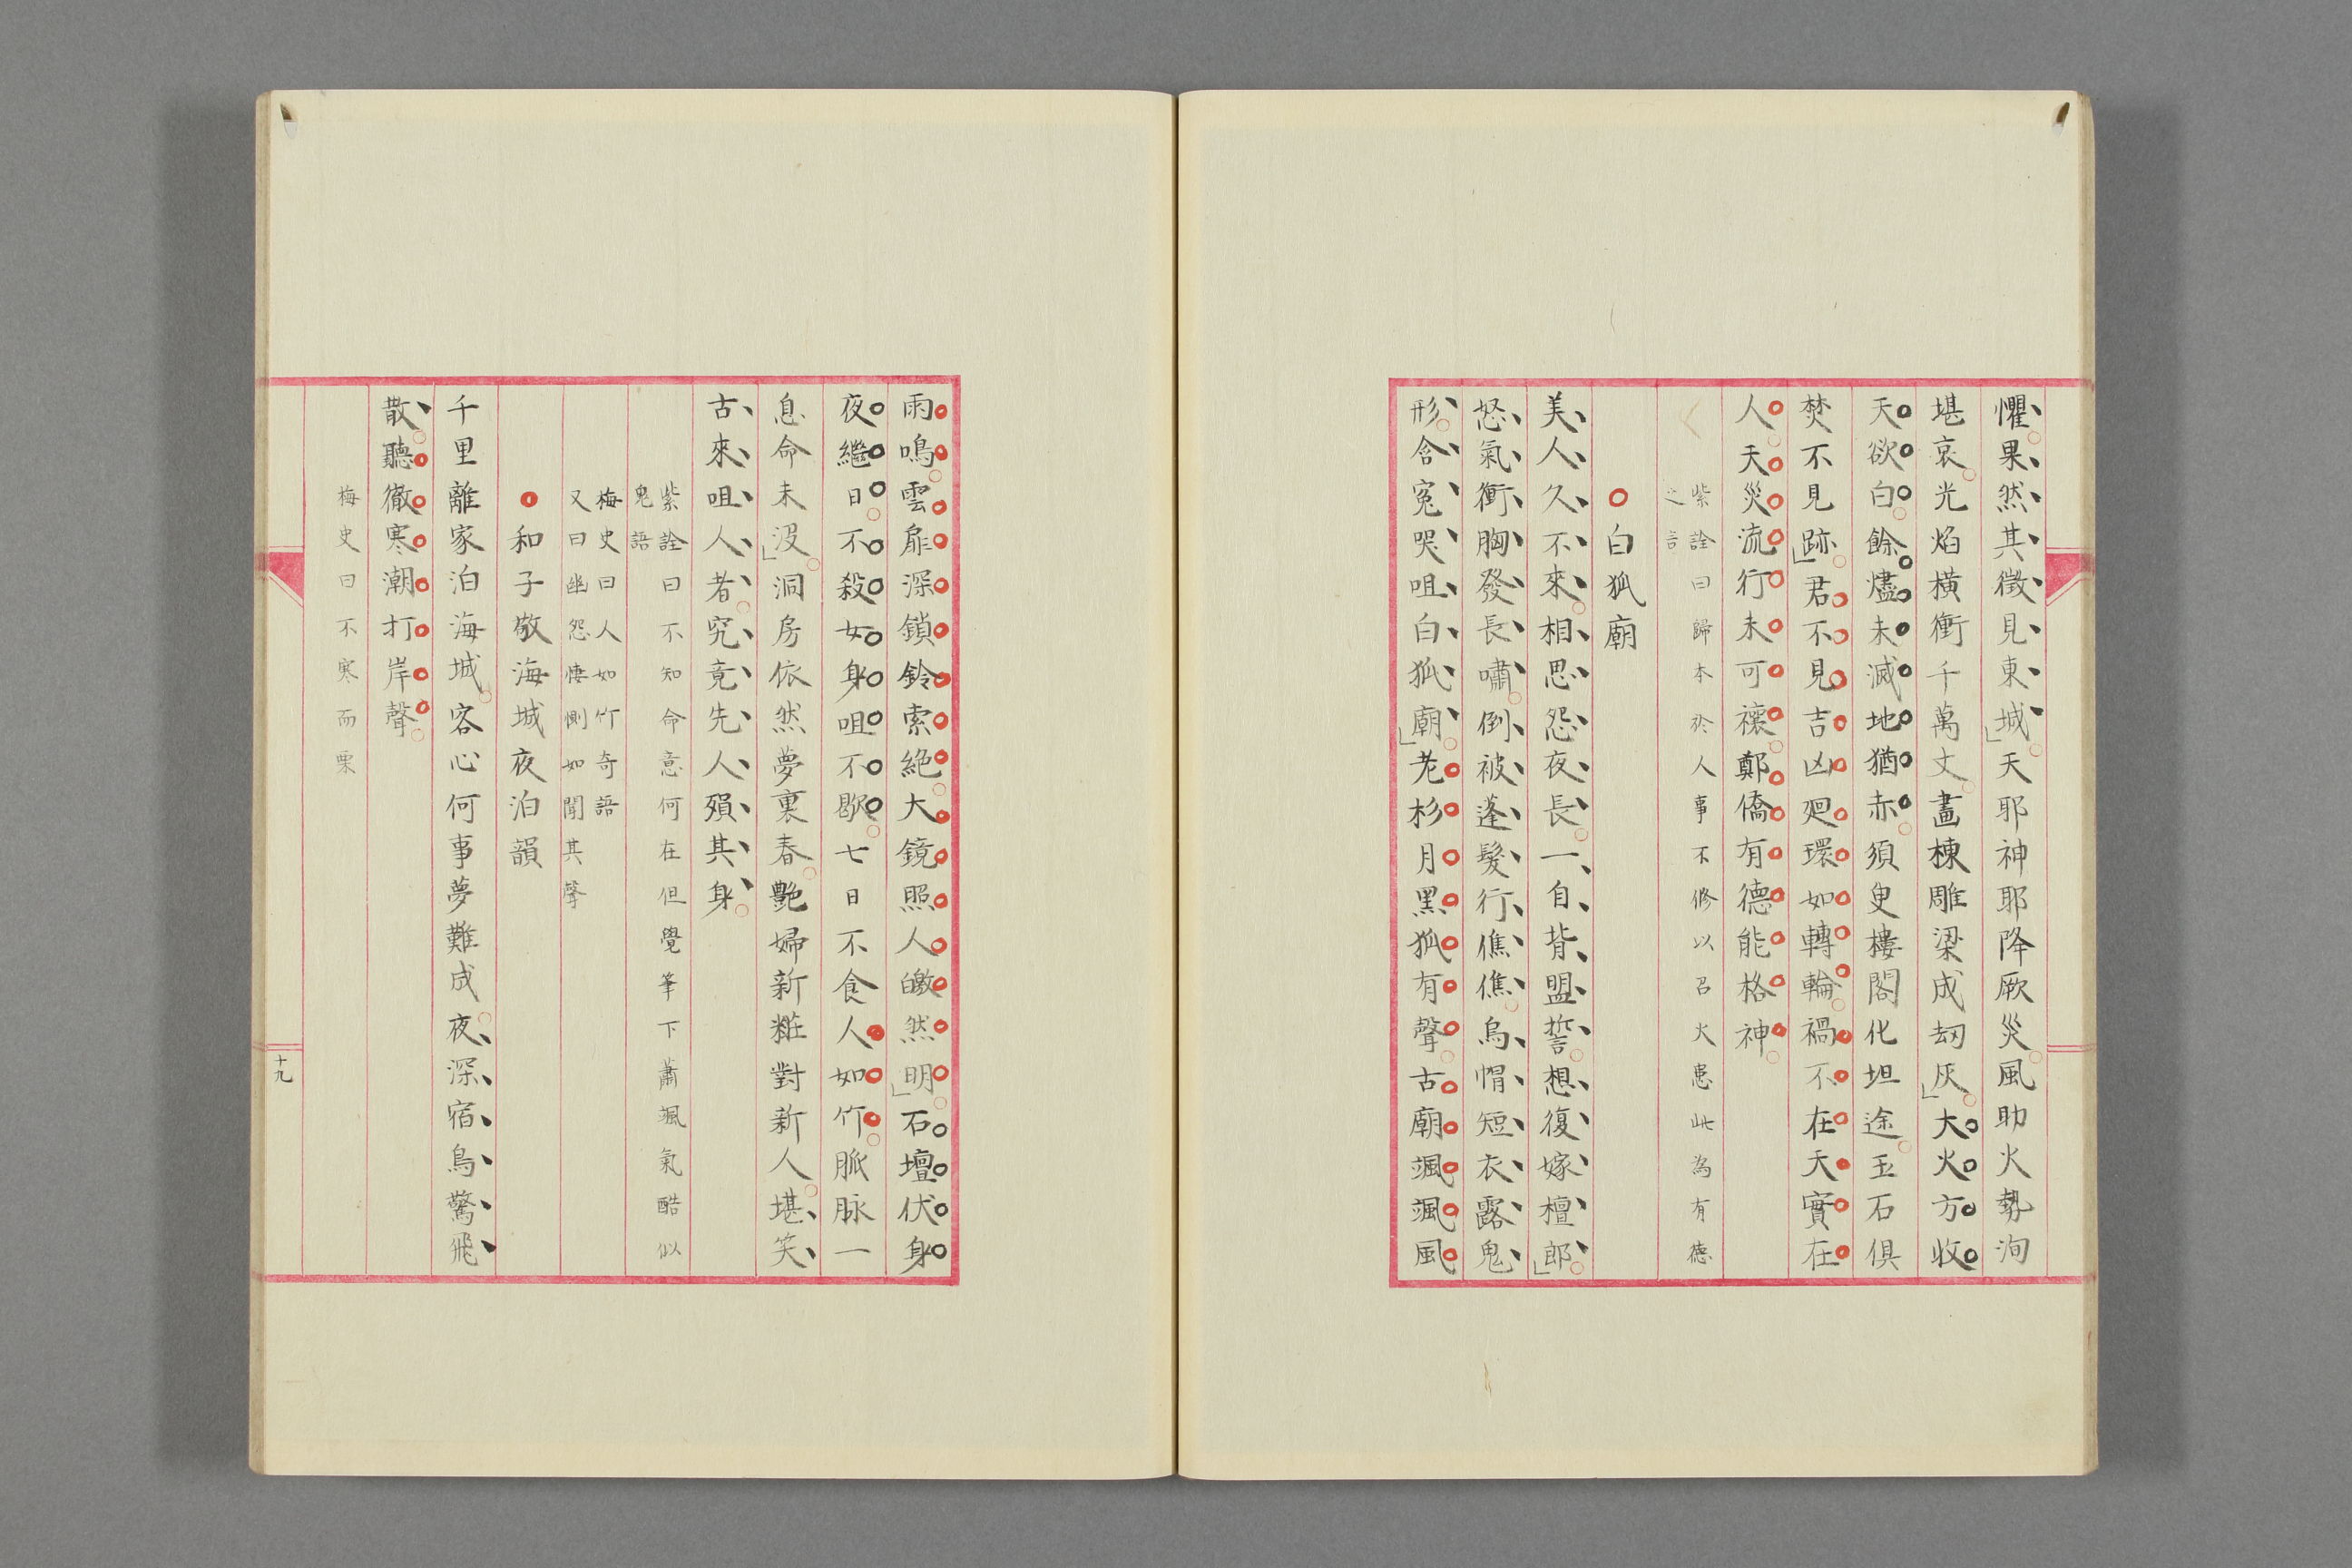 懼果然其徵見東城天耶神耶降厥災風助火勢洵
堪哀光焰橫衝千萬丈畫棟雕梁成刧灰大火方收
天欲白餘燼未滅地猶赤須臾樓閣化坦途玉石俱
焚不見跡君不見吉凶廻環如轉輪禍不在天實在
人天災流行未可禳鄭僑有德能格神
紫詮曰歸本於人事不修以召火患此為有德
之言
白狐廟
美人久不來相思怨夜長一自背盟誓想復嫁檀郎
怒氣衝胸發長嘯倒被蓬髮行僬僬烏帽短衣露鬼
形含寃哭咀白狐廟老杉月黑狐有聲古廟颯颯風
雨鳴雲扉深鎖鈴索絕大鏡照人皦然明石壇伏身
夜繼日不殺女身咀不歇七日不食人如竹脈脉一
息命未沒洞房依然夢裏春艷婦新粧對新人堪笑
古來咀人者究竟先人殞其身
紫詮曰不知命意何在但覺筆下蕭颯氣酷似
鬼語
梅史曰人如竹奇語
又曰幽怨悽惻如聞其聲
和子敬海城夜泊韻
千里離家泊海城客心何事夢難成夜深宿鳥驚飛
散聽徹寒潮打岸聲
梅史曰不寒而栗
十九